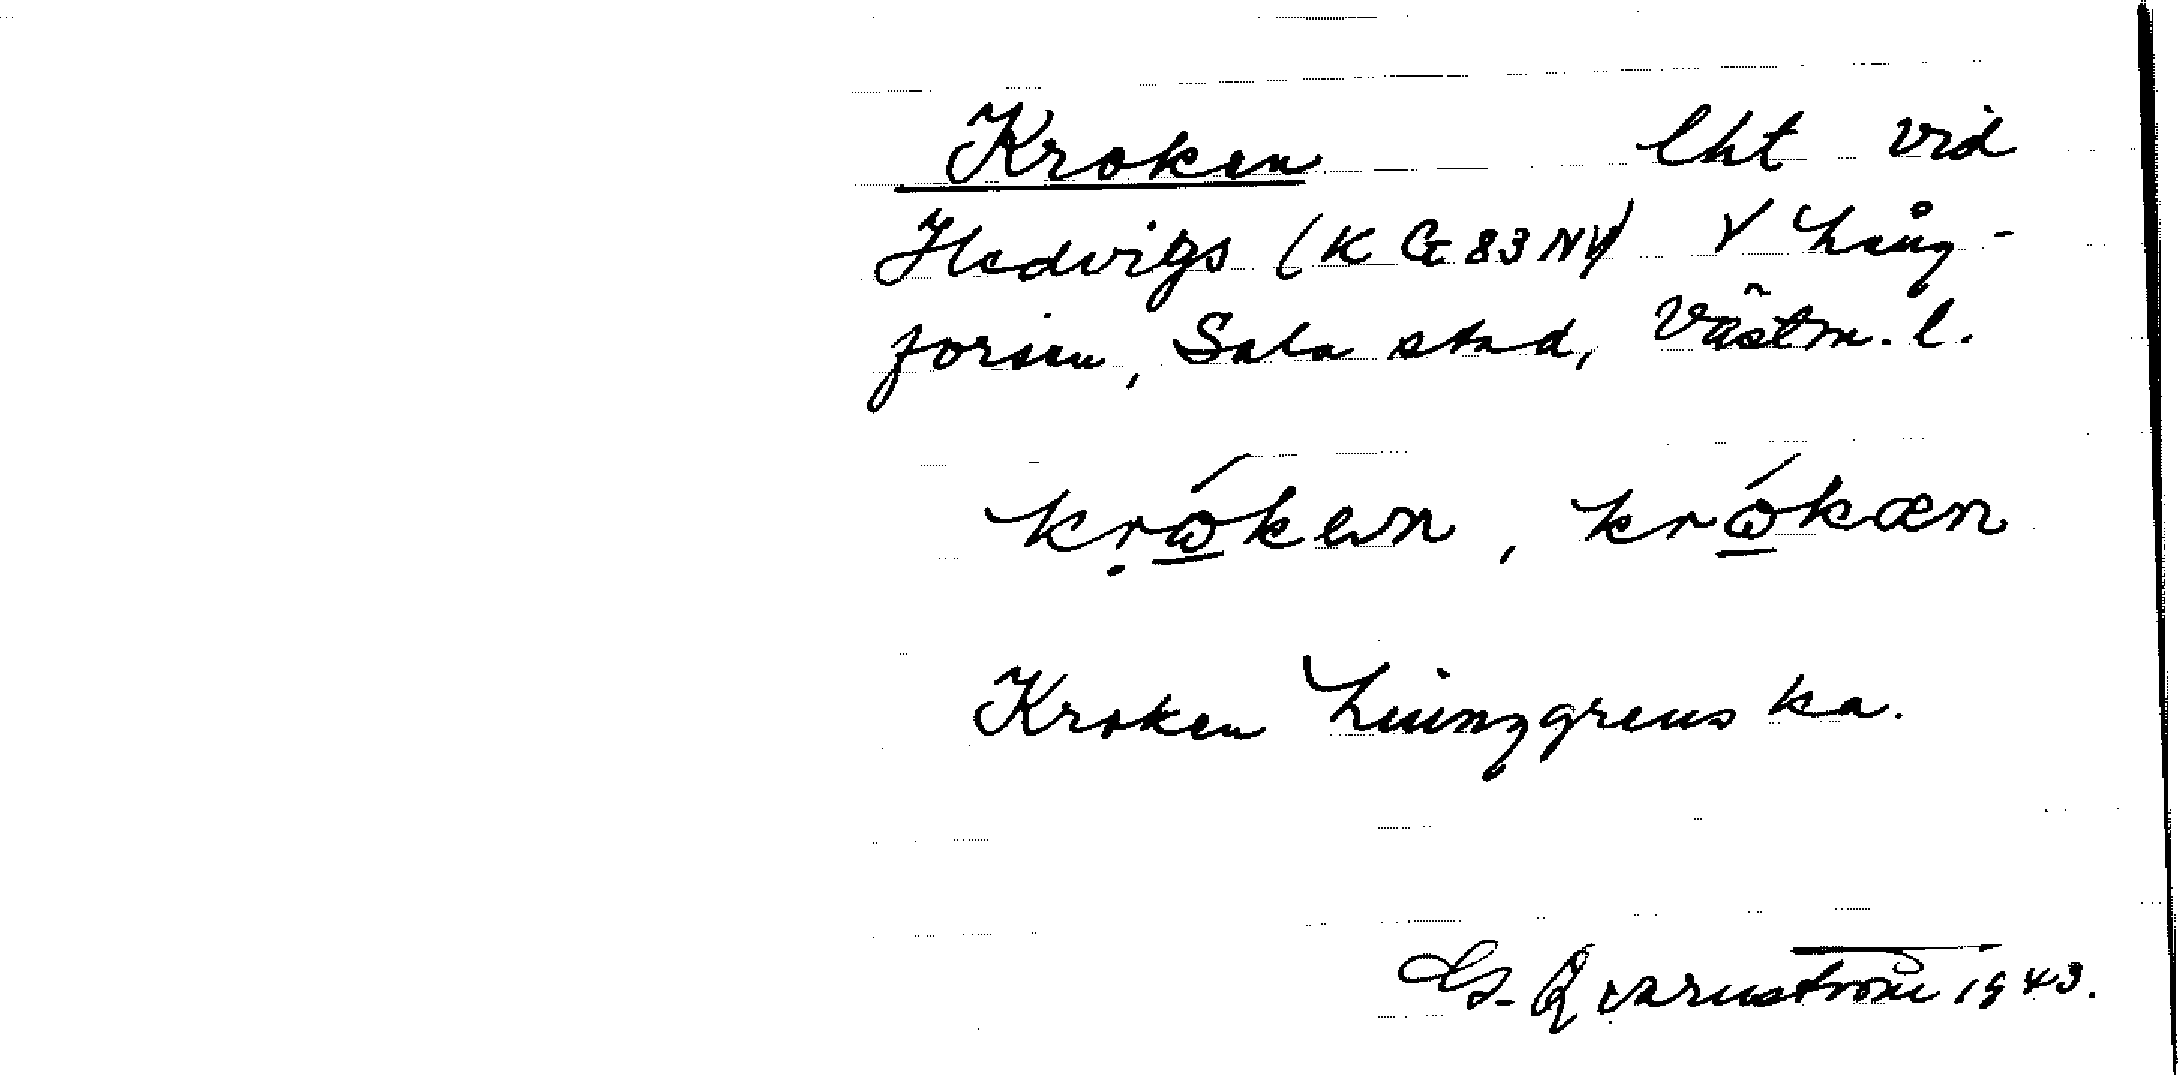 Kroken lht vid
Hedvigs (K Cc 83 NV) V Lång-
forsen, Sala stad, Västm. l.
krώ̲ken, krώ̲kæn
Kroken Ljunggrens ka.
G. Qvarnström 1943.